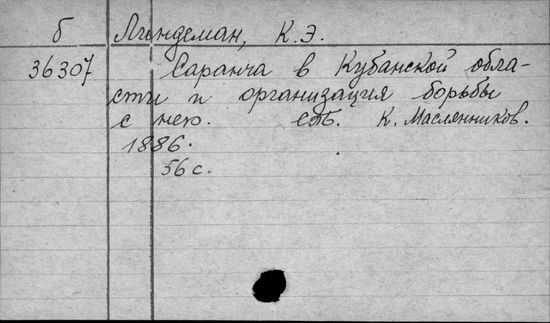 б Линдеман, К.Э.
36307 Саранча в Кубанской обла-
сти и организация борьбы
с нею. СПб. К. Маслянников.
1886.
56 с.